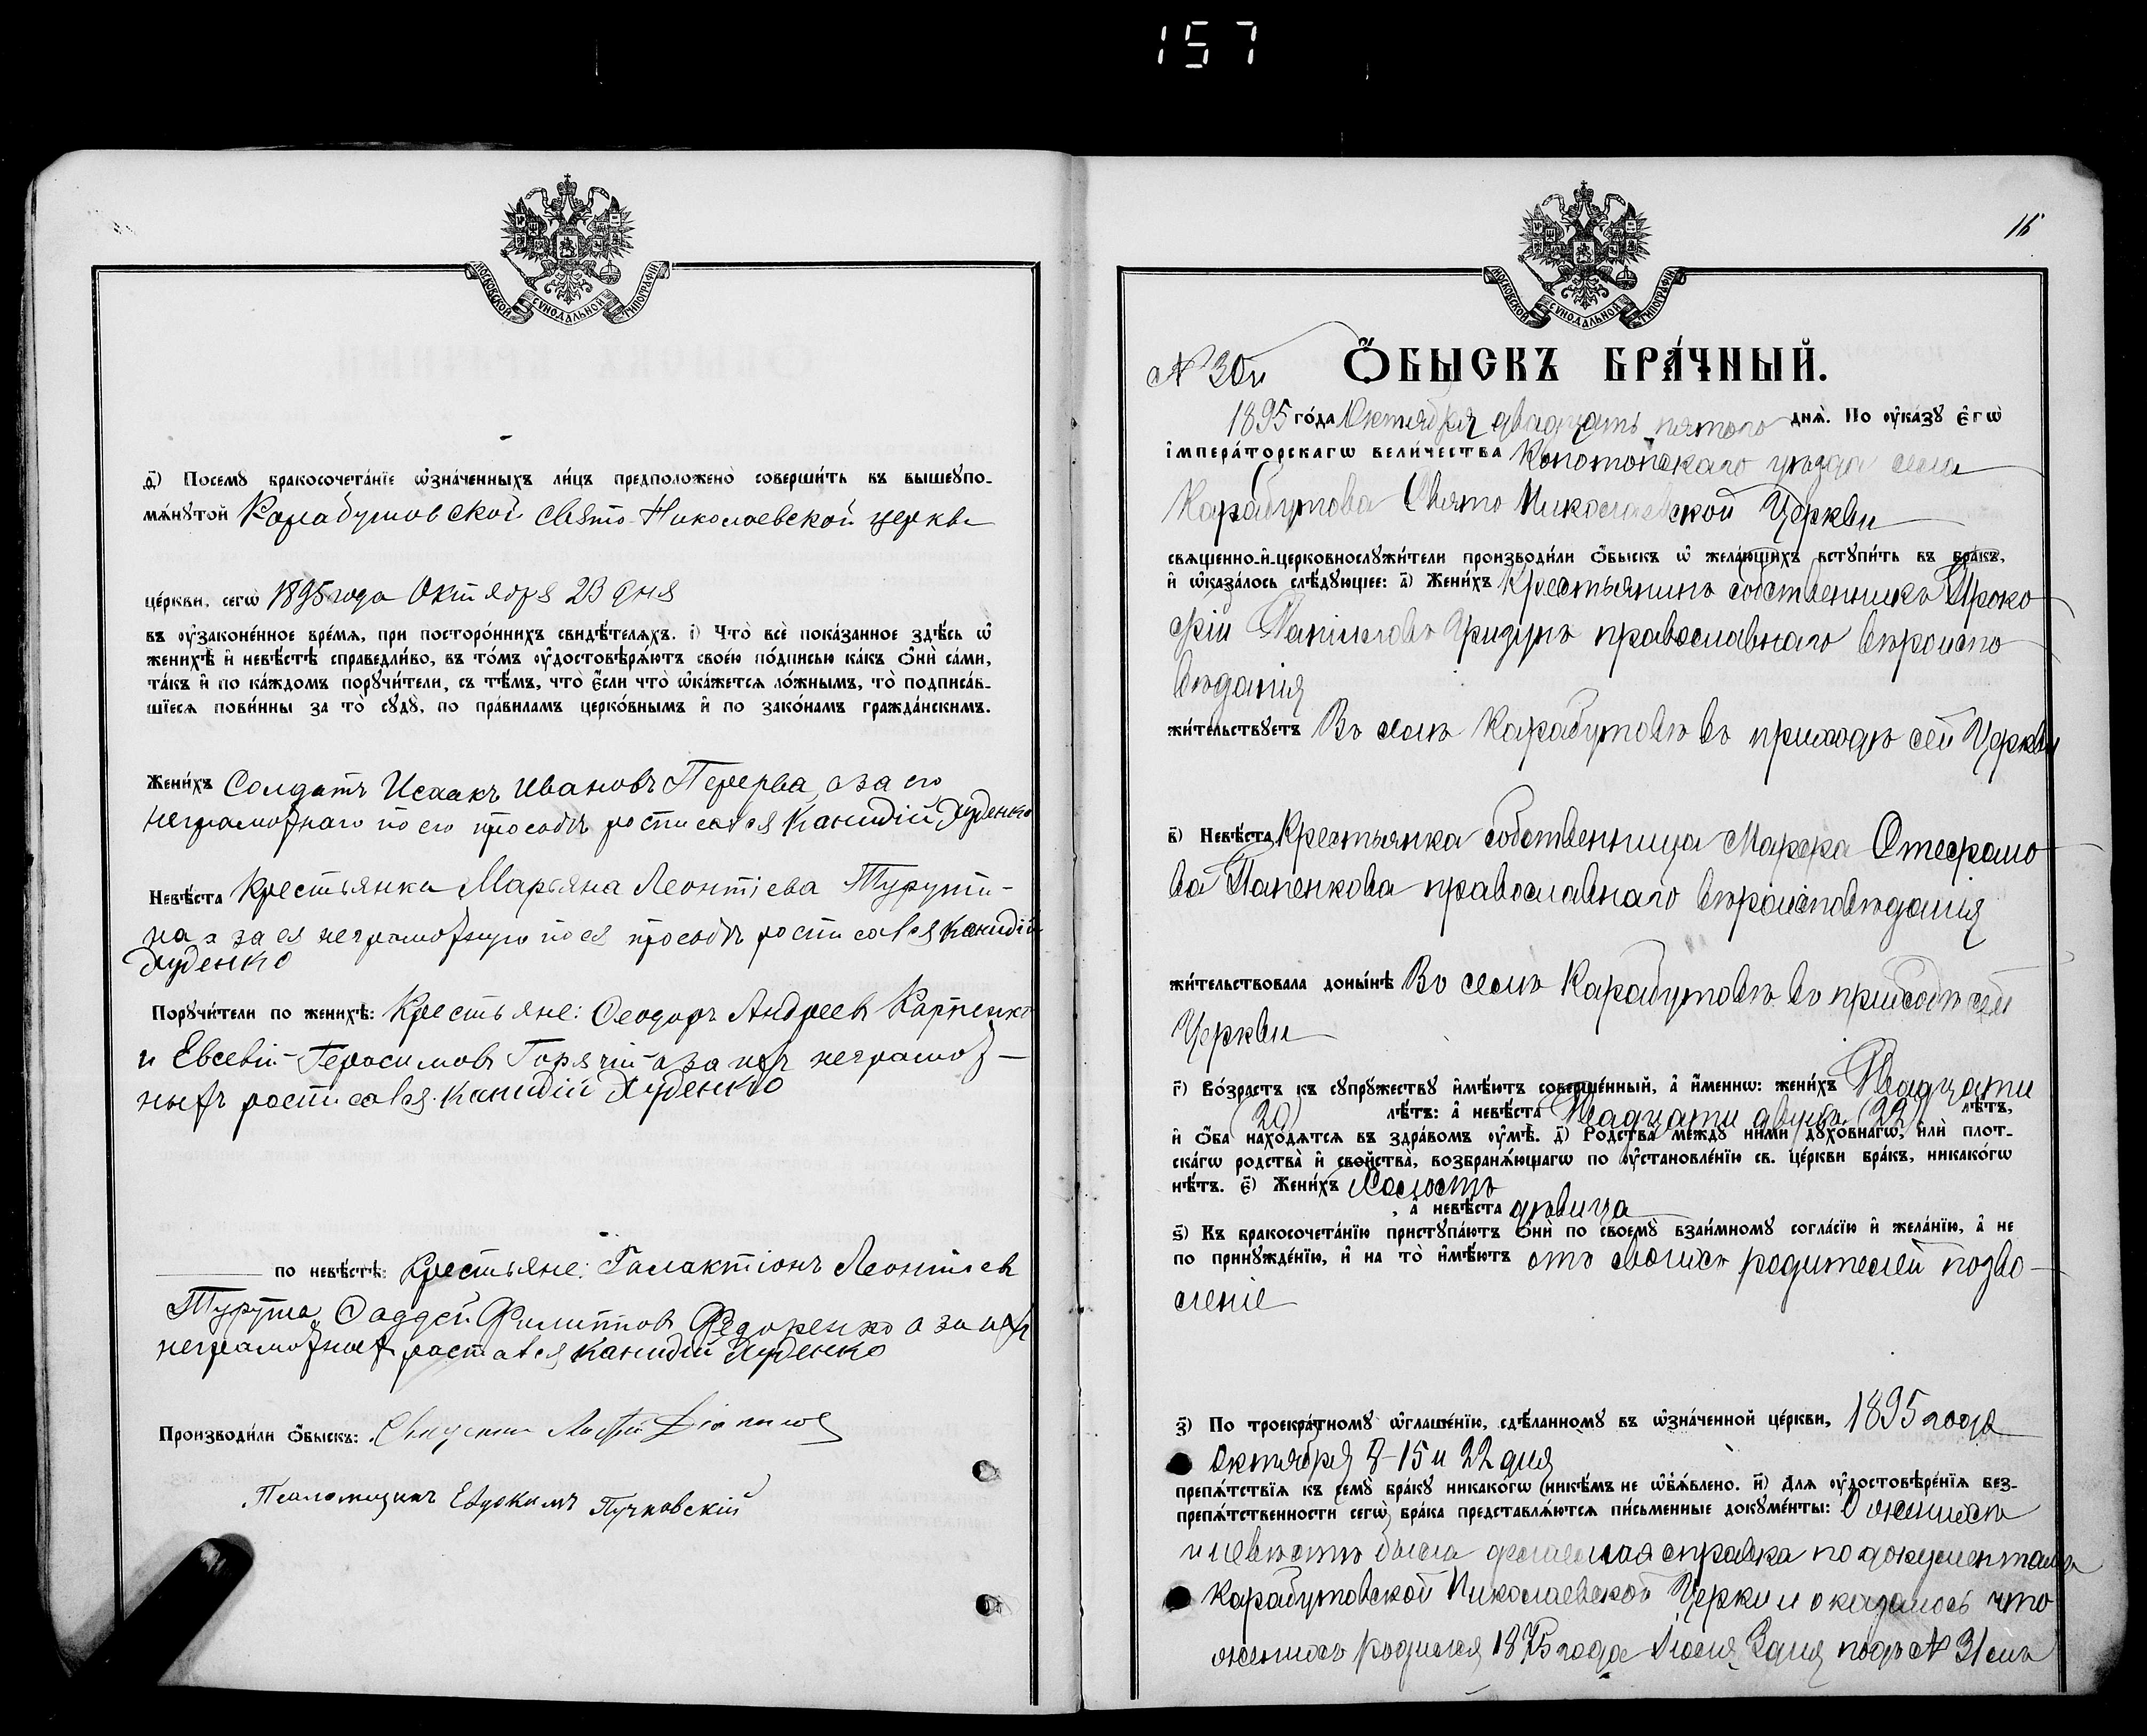 157
МОСКОВСКОЙ СѴНОДАЛЬНОЙ ТИПОГРАФІИ
д҃) Посемꙋ̀ бракосочета́нїе ѡ҆зна́ченныхъ ли́цъ предположено̀ соверши́ть въ вышеꙋпо-
мѧ́нꙋтой Карабутовской Свято-Николаевской церкви
це́ркви, сегѡ̀ 1895 года Октября 23 дня
въ ᲂу҆законе́нное вре́мѧ, при посторо́ннихъ свидѣ́телѧхъ. і҃) Что̀ всѐ пока́занное здѣ́сь ѡ҆
женихѣ̀ и҆ невѣ́стѣ справедли́во, въ то́мъ ᲂу҆достовѣрѧ́ютъ свое́ю по́дписью ка́къ ѻ҆нѝ са́ми,
та́къ и҆ по ка́ждомъ порꙋчи́тели, съ тѣ́мъ, что̀ є҆́сли что̀ ѡ҆ка́жетсѧ ло́жнымъ, то̀ подписа́в-
шїесѧ пови́нны за то̀ сꙋдꙋ̀, по пра́виламъ церко́внымъ и҆ по зако́намъ гражда́нскимъ.
Жени́хъ Солдатъ Исаакъ Ивановъ Перерва, а за его
неграмотнаго по его просьбѣ росписался Канидій Худенко
Невѣ́ста Крестьянка Марьяна Леонтіева Турути-
на а за ея неграмотную по ея просьбѣ росписался Канидій
Худенко
Порꙋчи́тели по женихѣ̀: Крестьяне: Ѳеодоръ Андреевъ Карпенко
и Евсевій Герасимовъ Горячій а за нихъ неграмот-
ныхъ росписался Канидій Худенко
по невѣ́стѣ: Крестьяне: Галактіонъ Леонтіевъ
Турута, Ѳаддей Филипповъ Федоренко а за ихъ
неграмотныхъ росписался Канидій Худенко
Производи́ли ѻ҆́быскъ: Священникъ
Псаломщикъ Евдокимъ Пучковскій
МОСКОВСКОЙ СѴНОДАЛЬНОЙ ТИПОГРАФІИ
16
№ 30й ѺБЫСКЪ БРА́ЧНЫЙ.
1895 го́да Октября двадцать пятого днѧ̀. По ᲂу҆ка́зꙋ є҆гѡ̀
і҆мпера́торскагѡ вели́чества Конотопскаго уѣзда села
Карабутова Свято Николаевской Церкви
свѧще́нно-и҆-церковнослꙋжи́тели производи́ли ѻ҆́быскъ ѡ҆ жела́ющихъ встꙋпи́ть въ бра́къ,
и҆ ѡ҆каза́лось слѣ́дꙋющее: а҃) Жени́хъ Крестьянинъ собственникъ Проко
фій Гридунъ православнаго вѣроиспо
вѣданія
жи́тельствꙋетъ Въ селѣ Карабутовѣ въ приходѣ сей Церкви
в҃) Невѣ́ста Крестьянка собственница Марфа Стефано
ва Папенкова православнаго вѣроисповѣданія
жи́тельствовала доны́нѣ Въ селѣ Карабутовѣ въ приходѣ сей
Церкви
г҃) Во́зрастъ къ сꙋпрꙋ́жествꙋ и҆мѣ́ютъ соверше́нный, а҆ и҆́меннѡ: жени́хъ Двадцати
(20) лѣ́тъ: а҆ невѣ́ста Двадцати двухъ (22) лѣ́тъ,
и҆ ѻ҆́ба нахо́дѧтсѧ въ здра́вомъ ᲂу҆мѣ̀. д҃) Родства̀ междꙋ̀ ни́ми дꙋхо́внагѡ, и҆лѝ плот-
ска́гѡ родства̀ и҆ сво́йства̀, возбранѧ́ющагѡ по ᲂу҆становле́нїю св. це́ркви бра́къ, никако́гѡ
нѣ́тъ. є҃) Жени́хъ Холостъ
, а҆ невѣ́ста дѣвица
ѕ҃) Къ бракосочета́нїю пристꙋпа́ютъ ѻ҆нѝ по своемꙋ̀ взаи́мномꙋ согла́сїю и҆ жела́нїю, а҆ не
по принꙋжде́нїю, и҆ на то̀ и҆мѣ́ютъ отъ своихъ родителей позво-
леніе
з҃) По троекра́тномꙋ ѡ҆глаше́нїю, сдѣ́ланномꙋ въ ѡ҆зна́ченной це́ркви, 1895 года
Октября 8-15 и 22 дня
препѧ́тствїѧ къ семꙋ̀ бра́кꙋ никако́гѡ никѣ́мъ не ѡ҆б̾ѧ́влено. и҃) Для ᲂу҆достовѣре́нїѧ без-
препѧ́тственности сегѡ̀ бра́ка представлѧ́ютсѧ пи́сьменные докꙋме́нты: О женихѣ
и невѣстѣ была дѣлаемая справка по документамъ
Карабутовской Николаевской Церкви и оказалось что
женихъ родился 1875 года Іюля 3 дня подъ № 31 мъ